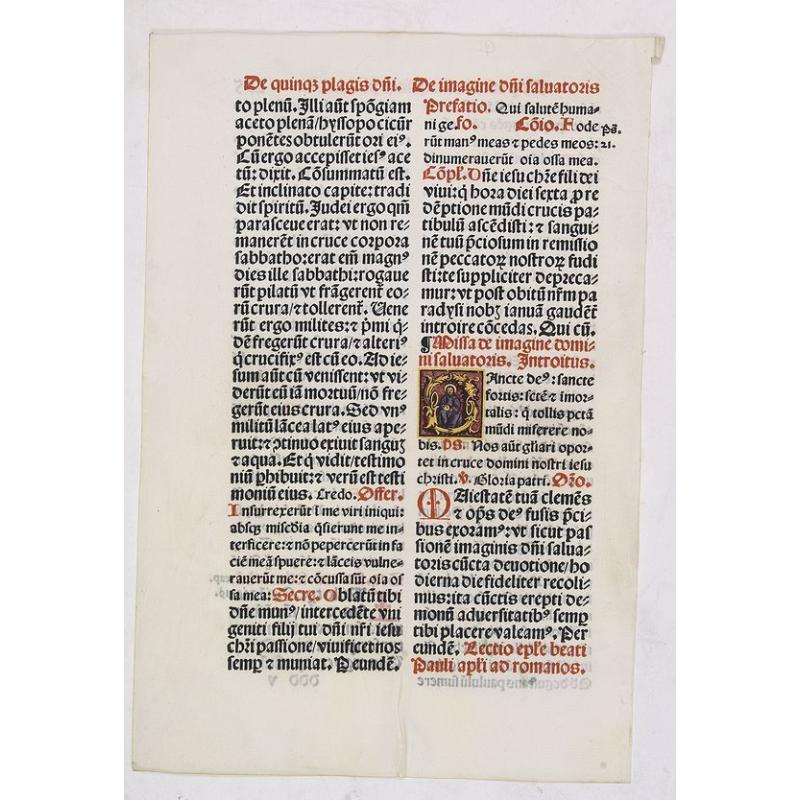 De quinqꝫ plagis dñi. De imagine dñi saluatoris
to plenū. Illi aūt spōgiam
aceto plenā/hyssopo cicūr
ponētes obtulerūt ori eiꝰ.
Cū ergo accepisset iesꝰ ace
tū: dixit. Cōsummatū est.
Et inclinato capite: tradi
dit spiritū. Judei ergo qm̄
parasceue erat: vt non re-
manerēt in cruce corpora
sabbatho: erat em̄ magnꝰ
dies ille sabbathi: rogaue
rūt pilatū vt frāgerenť eo-
rū crura/⁊ tollerenť. Uene
rūt ergo milites: ⁊ p̄mi q̇-
dē fregerūt crura/⁊ alteriꝰ
q̇ crucifixꝰ est cū eo. Ad ie-
sum aūt cū venissent: vt vi-
derūt eū iā mortuū/nō fre-
gerūt eius crura. Sed vnꝰ
militū lācea latꝰ eius ape-
ruit: ⁊ ꝯtinuo exiuit sanguꝫ
⁊ aqua. Et q̇ vidit/testimo
niū ꝑhibuit: ⁊ verū est testi
moniū eius. Credo. Offer.
Insurrexerūt ī me viri iniqui:
absqꝫ misc̄dia q̄sierunt me in-
terficere: ⁊ nō pepercerūt in fa
ciē meā spuere: ⁊ lāceis vulne-
rauerūt me: ⁊ cōcussa sūt oīa os
sa mea: Secre. Oblatū tibi
dñe munꝰ/intercedēte vni
geniti filij tui dñi nr̄i iesu
chr̄i passione/viuificet nos
semꝑ ⁊ muniat. P eundē.
Prefatio. Qui salutē huma-
ni ge. Fo. Cōio. Fode
rūt manꝰ meas ⁊ pedes meos:
dinumerauerūt oīa ossa mea.
pā.
21.
Cōpl̄. Dñe iesu chr̄e fili dei
viui: q̇ hora diei sexta ꝓ re
dēptione mūdi crucis pa-
tibulū ascēdisti: ⁊ sangui-
nē tuū p̄ciosum in remissio
nē peccatoꝝ nostroꝝ fudi
sti: te suppliciter depreca-
mur: vt post obitū nr̄m pa
radysi nobꝫ ianuā gaudēť
introire cōcedas. Qui cū.
¶ Missa de imagine domi-
ni saluatoris. Introitus.
Sancte deꝰ: sancte
fortis: sctē ⁊ imor-
talis: q̇ tollis pctā
mūdi miserere no-
bis. Ds. Nos aūt gl̄iari opor-
tet in cruce domini nostri iesu
christi. ℣. Gloria patri. Or̄o.
MAiestatē tuā clemēs
⁊ op̄s deꝰ fusis p̄ci-
bus exoramꝰ: vt sicut pas
sionē imaginis dñi salua-
toris cūcta deuotione/ho
dierna die fideliter recoli-
mus: ita cūctis erepti de-
monū aduersitatibꝰ semꝑ
tibi placere valeamꝰ. Per
eundē. Lectio epl̄e beati
Pauli apl̄i ad romanos.